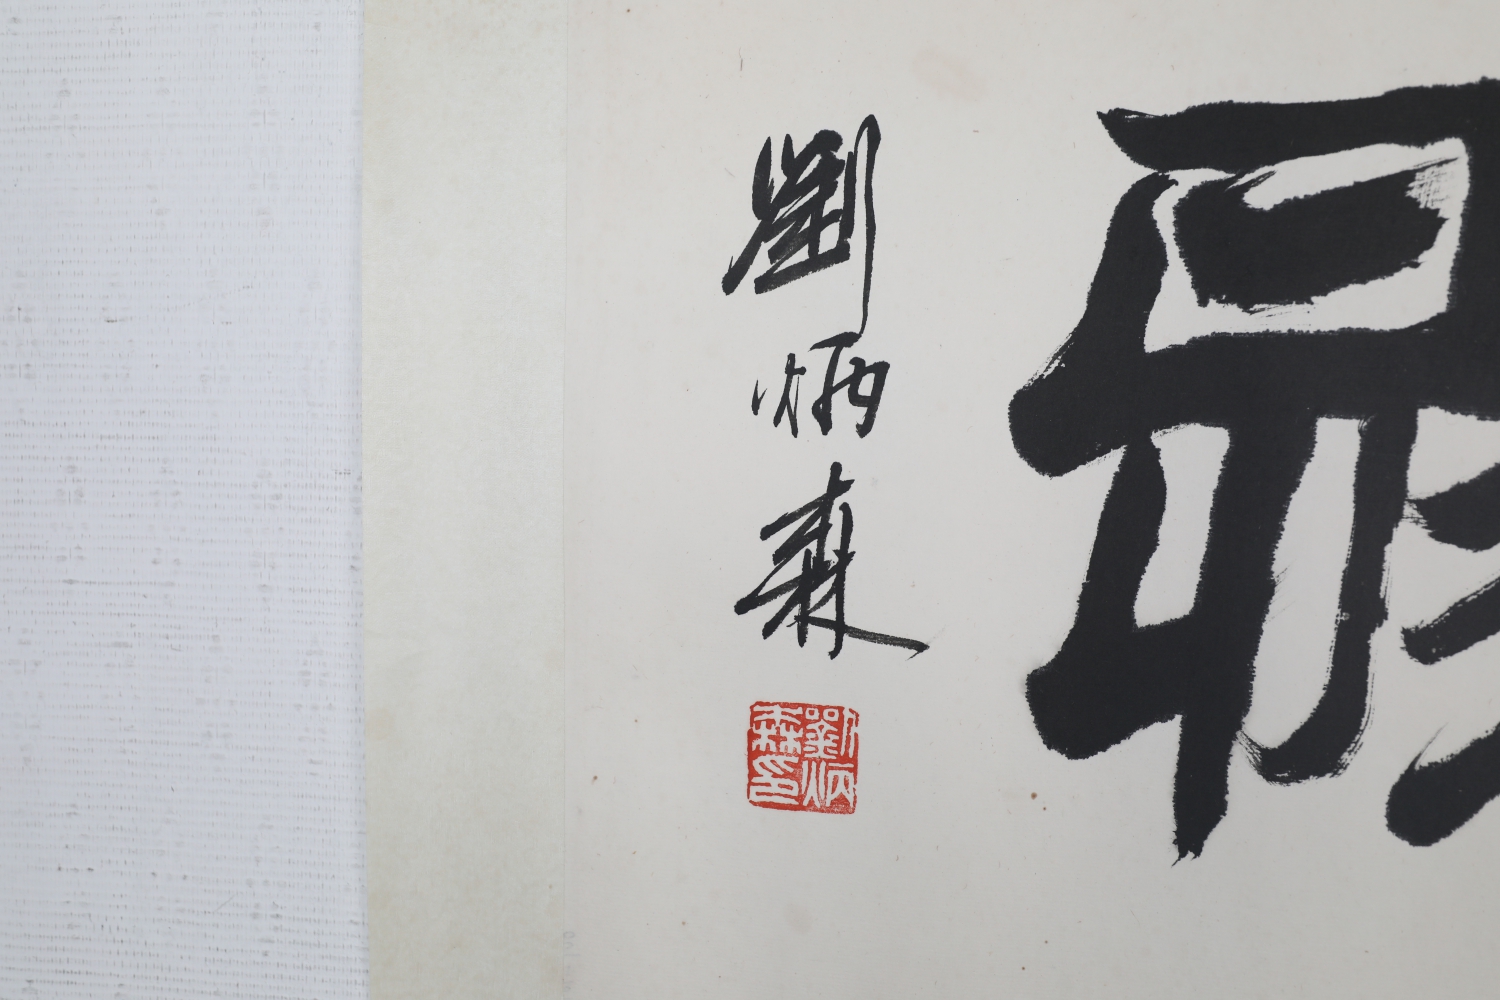 劉炳森
劉炳森印